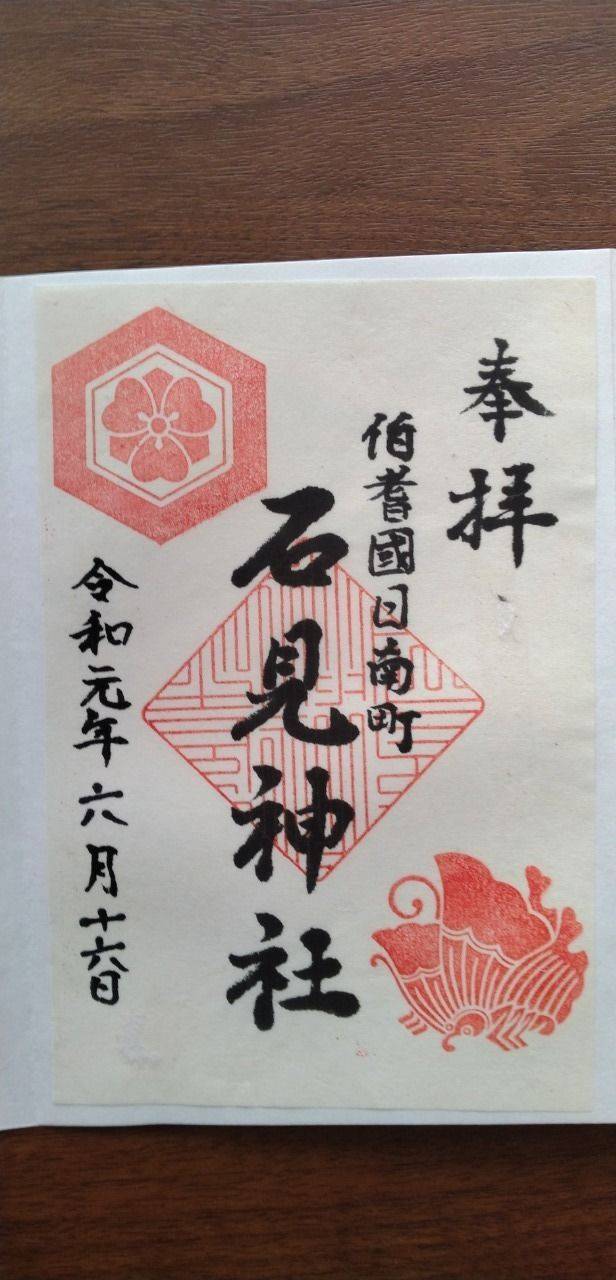 奉拝
伯耆國日南町
石見神社
令和元年六月十六日